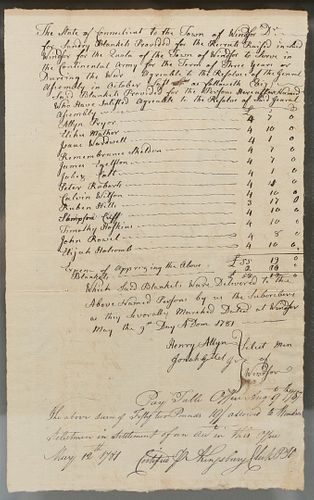 The State of Connecticut to the Town of Windsor Dr
for Sundry Blankets Provided for the Recruits Raised in said
Windsor for the Quota of the Town of Windsor to Serve in
the Continental Army for the Term of Three Years or
During the War Agreable to the Resolve of the General
Assembly in October Last as followeth (viz)
Said Blankets Provided for the Persons Hereafter Named
Who Have Inlisted Agreable to the Resolve of said General
Assembly
Allyn Pryor 4 7 0
Elihu Mather 4 10 0
Isaac Wardwell 4 10 0
Remembrance Sheldon 4 10 0
James 4 10 0
4 10 0
Peter Roberts 4 10 0
Calvin Wilson 4 10 0
Ruben Hills 3 17 0
Sampson Cuff 4 10 0
Timothy Hoskins 4 10 0
John Rowel 4 8 0
Elijah Holcomb 4 10 0
Expence of Apprizing the Above
Blankets
Which Said Blankets Ware Delivered to the
Above Named Persons by us the Subscribers
as they Severally Marched Dated at Windsor
May the 9th Day A Dom 1781
Henry Allyn
Josiah
Select Men
of
Windsor
Pay Table Office
The above sum of Fifty two Pounds allowed to Windsor
Selectmen in Settlement of an acct in this Office
May 12th 1781 Certified Pr Kingsbury Clerk